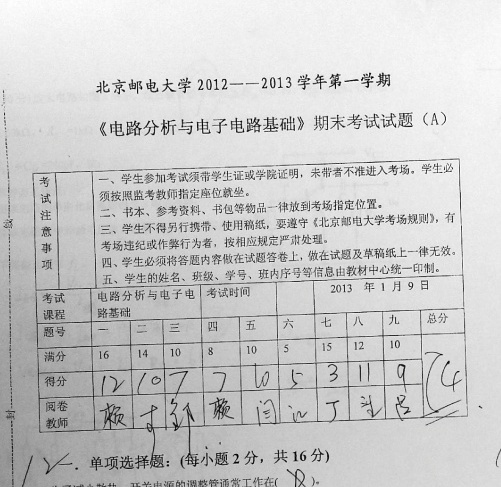 北京邮电大学 2012——2013 学年第一学期
《电路分析与电子电路基础》期末考试试题（A）
考试注意事项
一、学生参加考试须带学生证或学院证明，未带者不准进入考场。学生必
须按照监考教师指定座位就坐。
二、书本、参考资料、书包等物品一律放到考场指定位置。
三、学生不得另行携带、使用稿纸，要遵守《北京邮电大学考场规则》，有
考场违纪或作弊行为者，按相应规定严肃处理。
四、学生必须将答题内容做在试题答卷上，做在试题及草稿纸上一律无效。
五、学生的姓名、班级、学号、班内序号等信息由教材中心统一印制。
考试课程 电路分析与电子电路基础 考试时间 2013 年 1 月 9 日
题号 一 二 三 四 五 六 七 八 九 总分
满分 16 14 10 8 10 5 15 12 10
得分 12 10 7 7 10 5 3 11 9 74
阅卷教师 赖 赖 闫 江 丁
12
一．单项选择题：(每小题 2 分，共 16 分)
开关电源的调整管通常工作在( B ).